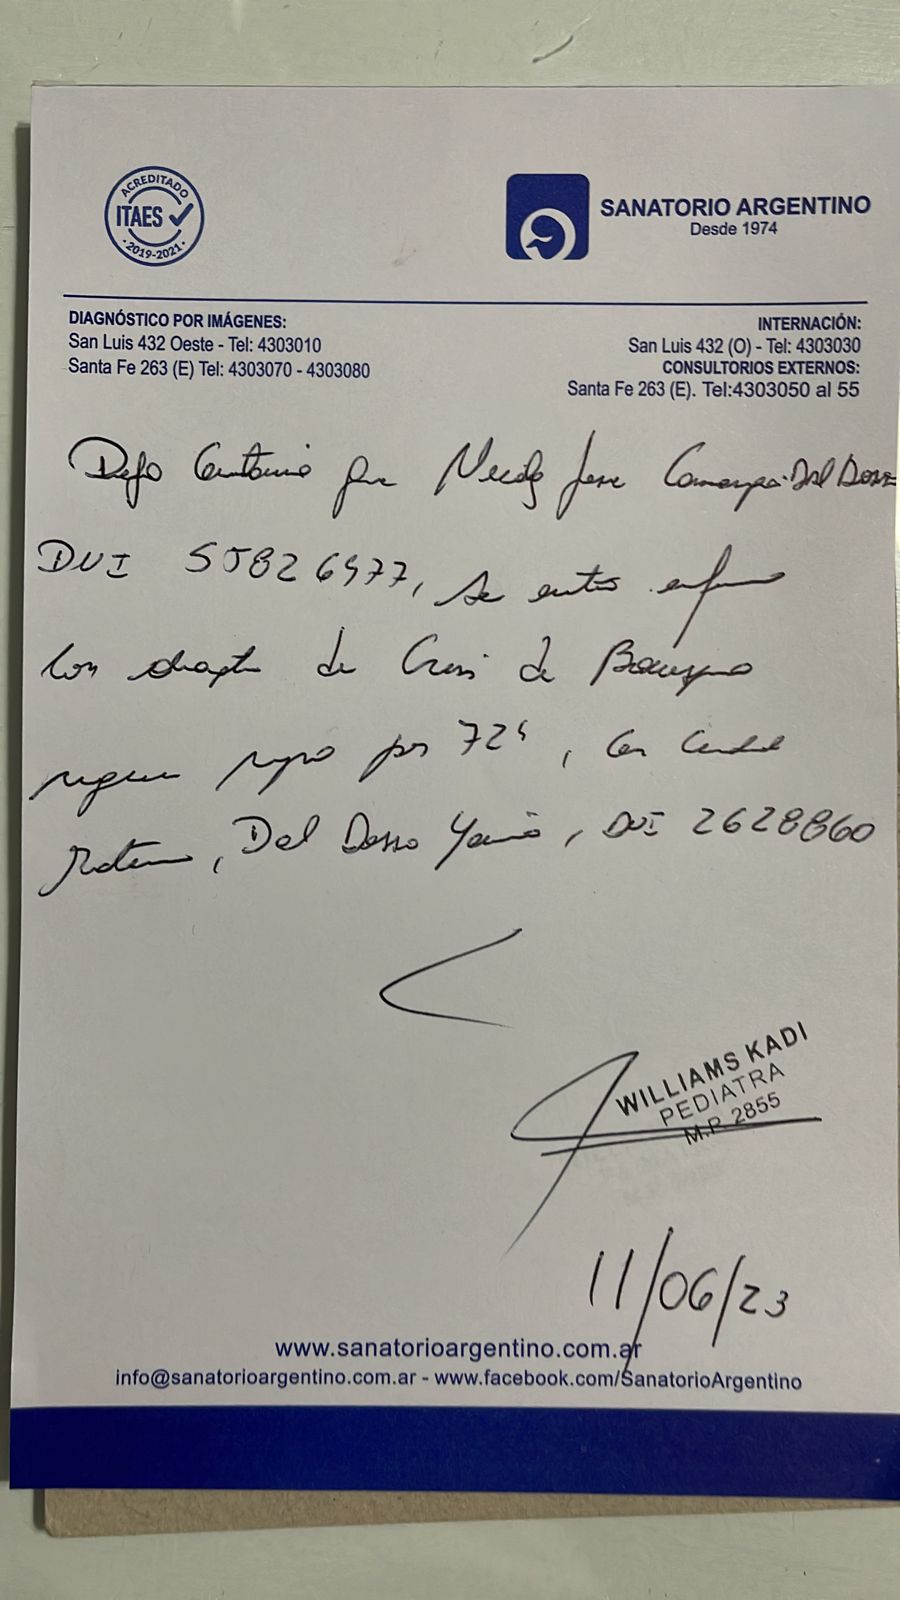 ACREDITADO
ITAES
· 2019-2021 ·
SANATORIO ARGENTINO
Desde 1974
DIAGNÓSTICO POR IMÁGENES:
San Luis 432 Oeste - Tel: 4303010
Santa Fe 263 (E) Tel: 4303070 - 4303080
INTERNACIÓN:
San Luis 432 (O) - Tel: 4303030
CONSULTORIOS EXTERNOS:
Santa Fe 263 (E). Tel:4303050 al 55
Dejo Constancia que Jose Dal Dosso
DNI se enfermo
Con de Crisis de
requiere reposo por 72h, Con
Materno, Dal Dosso, DNI 2628860
WILLIAMS KADI
PEDIATRA
M.P. 2855
11/06/23
www.sanatorioargentino.com.ar
info@sanatorioargentino.com.ar - www.facebook.com/SanatorioArgentino